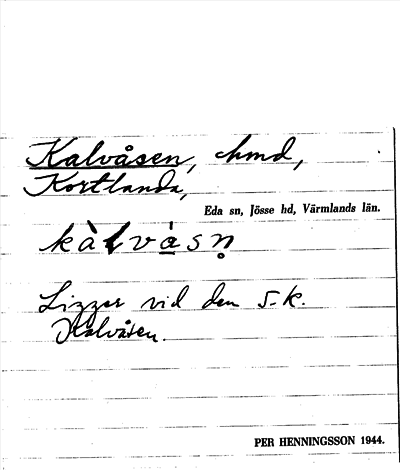 Kalvåsen, hmd,
Kortlanda,
Eda sn, Jösse hd, Värmlands län.
kàlvàsn̥
Ligger vid den s.k.
Kalvåsen.
PER HENNINGSSON 1944.